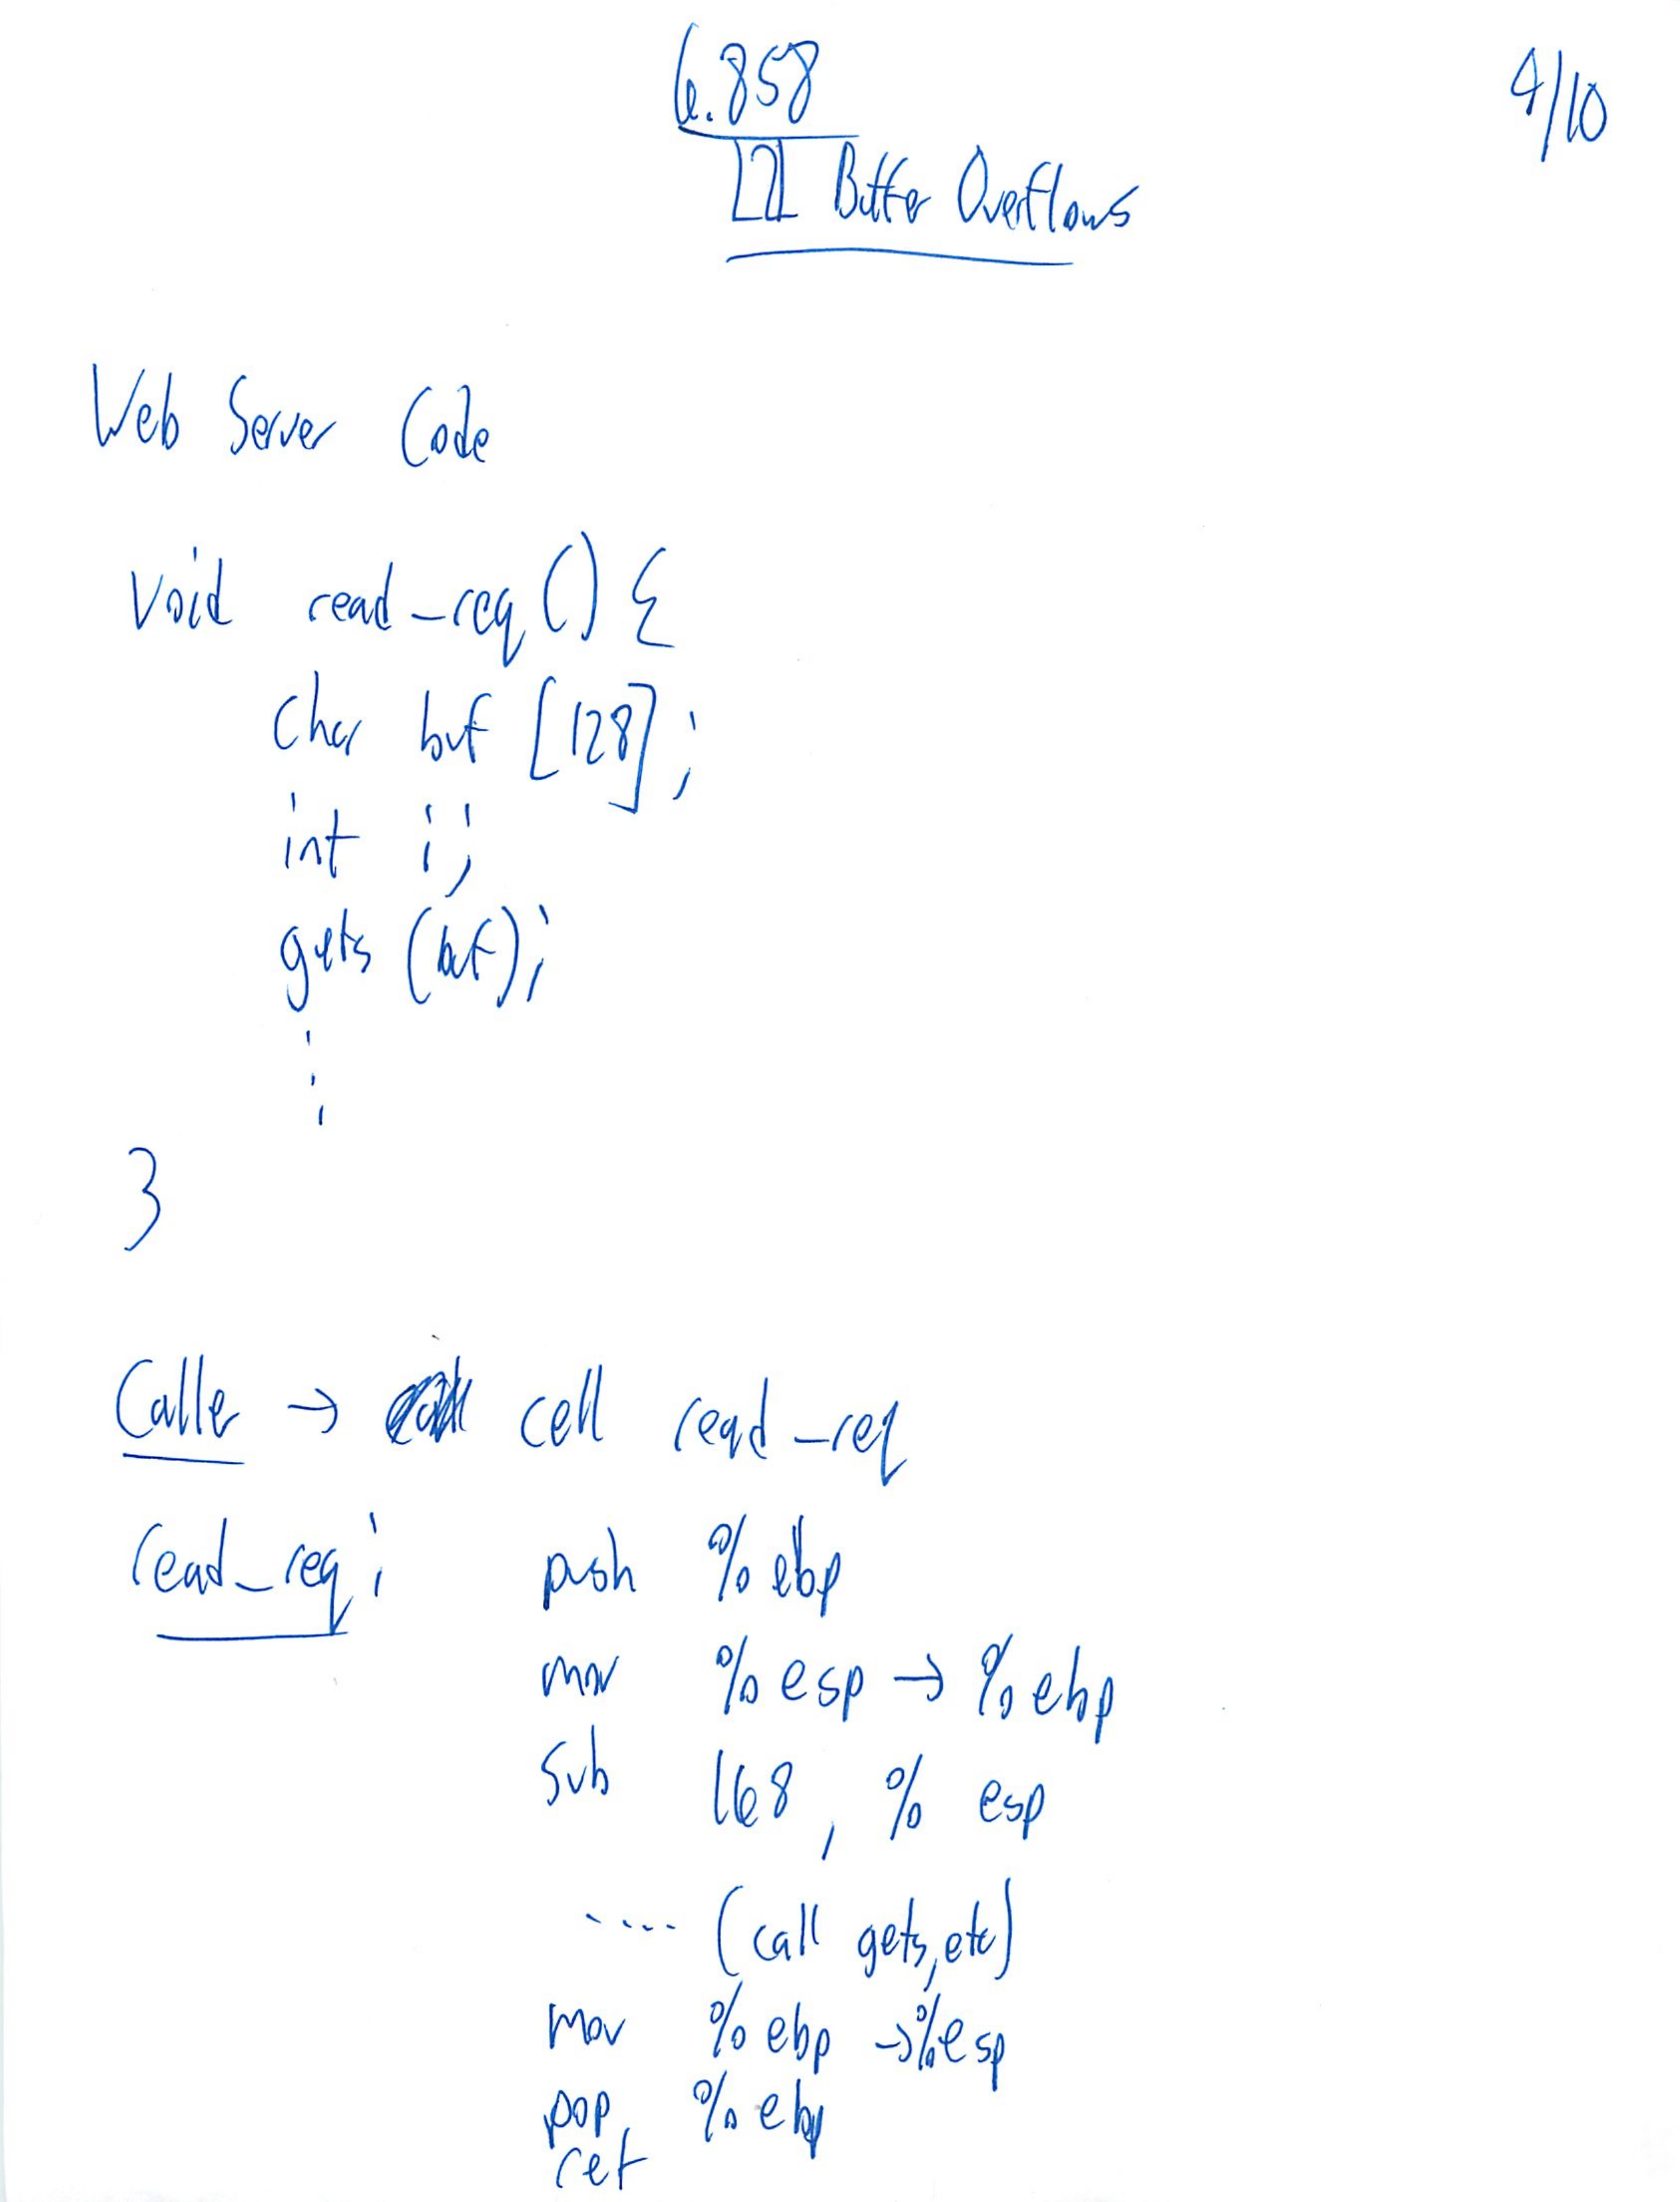 6.858
9/10
L2 Buffer Overflows
Web Server Code
void read_req() {
char buf [128];
int i;
gets (buf);
⋮
}
Caller → call read_req
read_req: push %ebp
mov %esp → %ebp
sub 168, % esp
.... (call gets, etc)
mov %ebp → %esp
pop %ebp
ret